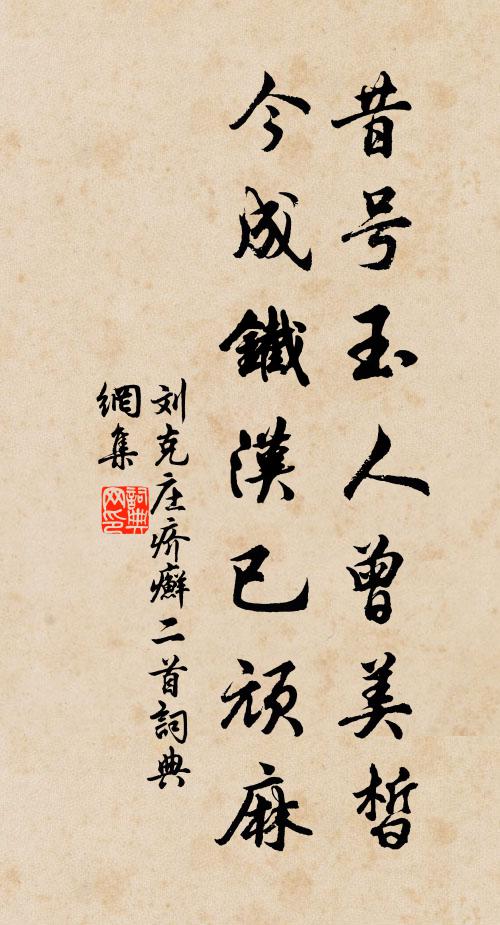 昔号玉人曾美皙
今成鐵漢已頑麻
刘克庄疥癬二首詞典
網集
詞典网印